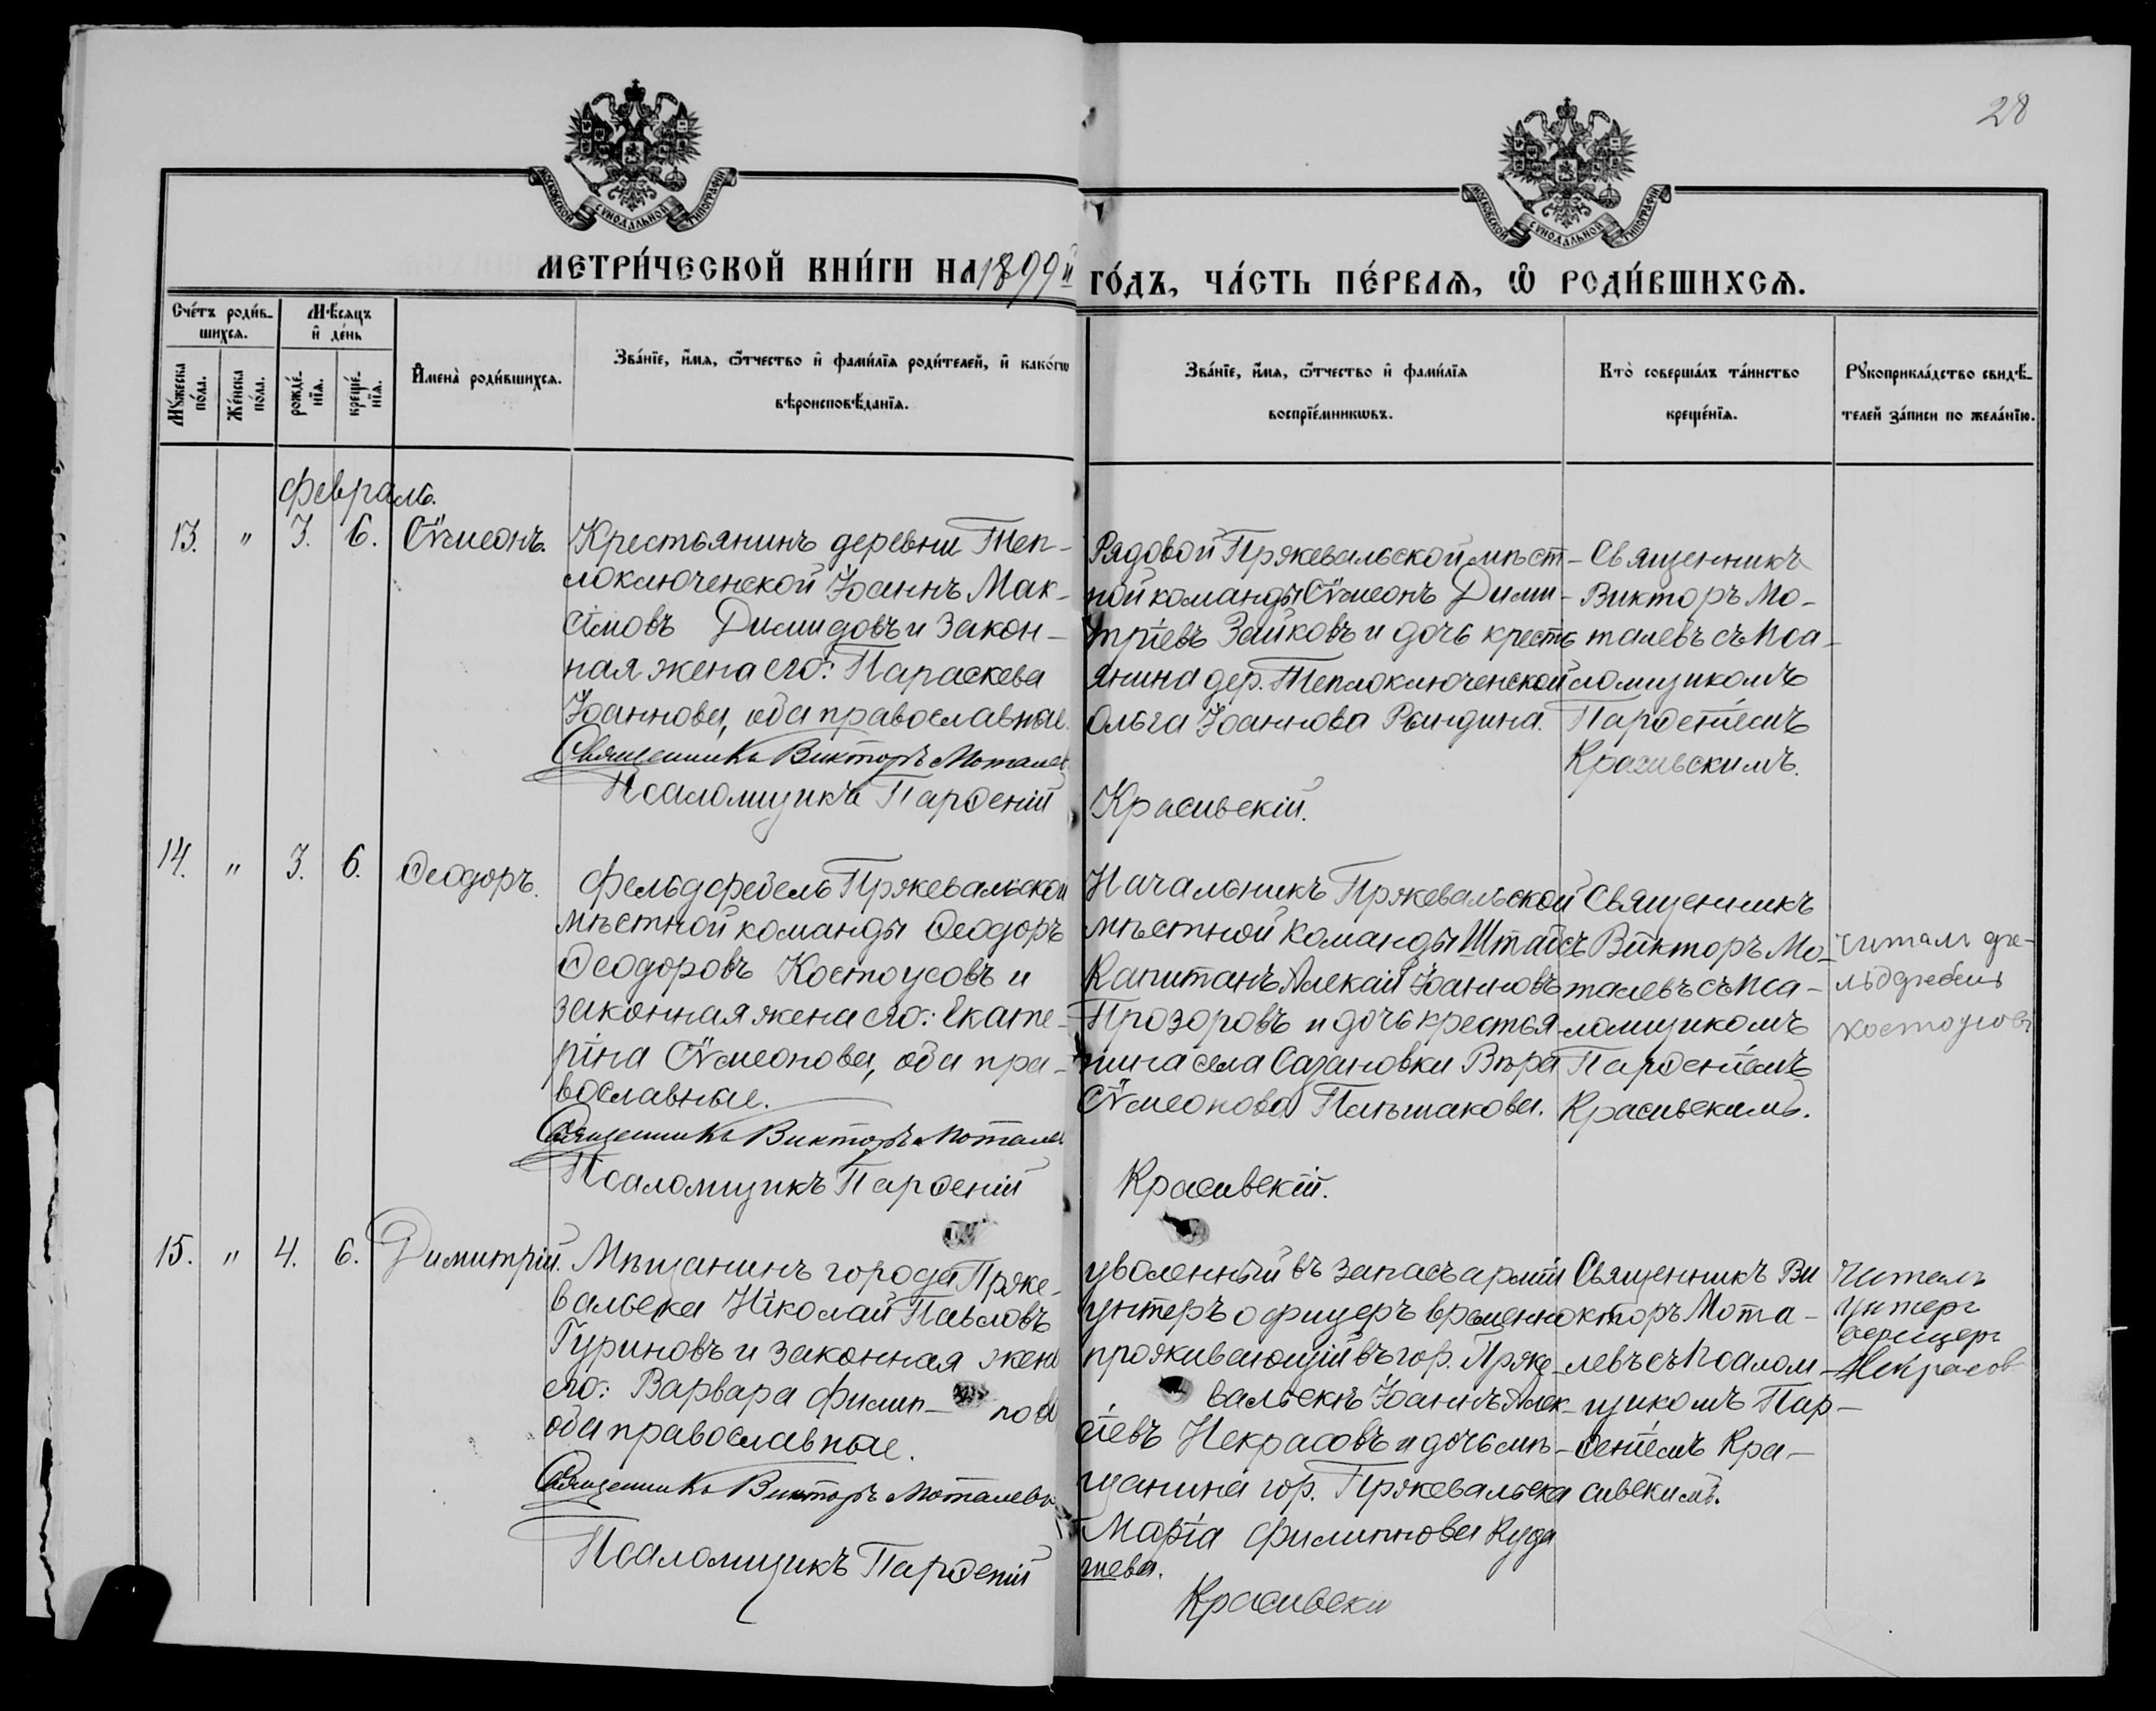 28
МОСКОВСКОЙ СѴНОДАЛЬНОЙ ТИПОГРАФІИ
МОСКОВСКОЙ СѴНОДАЛЬНОЙ ТИПОГРАФІИ
МЕТРИ́ЧЕСКОЙ КНИ́ГИ НА 1899й ГО́ДЪ, ЧА́СТЬ ПЕ́РВАѦ, Ѿ РОДИ́ВШИХСѦ.
Сче́тъ роди́в-
шихсѧ.
Мѣ́сѧцъ
и҆ де́нь
Мꙋ́жеска
по́ла.
Же́нска
по́ла.
рожде́-
нїѧ.
креще́-
нїѧ.
И҆мена̀ роди́вшихсѧ.
Зва́нїе, и҆́мѧ, ѻ҆́тчество и҆ фами́лїѧ роди́телей, и҆ како́гѡ
вѣроисповѣ́данїѧ.
Зва́нїе, и҆́мѧ, ѻ҆́тчество и҆ фами́лїѧ
воспрїе́мникѡвъ.
Кто̀ соверша́лъ та́инство
креще́нїѧ.
Рꙋкоприкла́дство свидѣ́-
телей за́писи по жела́нїю.
Февраль.
13. " 3. 6. Сѷмеонъ.
Крестьянинъ деревни Теп-
лоключенской Іоаннъ Мак-
сімовъ Димидовъ и закон-
ная жена его: Параскева
Іоаннова, оба православные.
Священникъ Викторъ Моталев
Псаломщикъ Парѳеній Красивскій.
Рядовой Пржевальской мѣст-
ной команды Сѷмеонъ Дими-
тріевъ Зайковъ и дочь кресть
янина дер. Теплоключенской
Ольга Іоаннова Рындина.
Священникъ
Викторъ Мо-
талевъ съ пса-
ломщикомъ
Парѳеніемъ
Красивскимъ.
14. " 3. 6. Ѳеодоръ.
Фельдфебель Пржевальской
мѣстной команды Ѳеодоръ
Ѳеодоровъ Костоусовъ и
законная жена его: Екате-
ріна Сѷмеонова, оба пра-
вославные.
Священникъ Викторъ Моталев
Псаломщикъ Парѳеній Красивскій.
Начальникъ Пржевальской
мѣстной команды Штабсъ
Капитанъ Алексій Іоанновъ
Прозоровъ и дочь крестья-
нина села Сазановки Вѣра
Сѷмеонова Пеньшакова.
Священникъ
Викторъ Мо-
талевъ съ пса-
ломщикомъ
Парѳеніемъ
Красивскимъ.
читалъ фе-
льдфебель
Костоусовъ
15. " 4. 6. Димитрій.
Мѣщанинъ города Прже-
вальска Ніколай Павловъ
Гуриновъ и законная жена
его: Варвара Филип- пова
оба православные.
Священникъ Викторъ Моталевъ
Псаломщикъ Парѳеній Красивскі
уволенный въ запасъ арміи
унтеръ офицеръ временно
проживающій въ гор. Прже-
вальскѣ Іоаннъ Алек-
сіевъ Некрасовъ и дочь мѣ-
щанина гор. Пржевальска
Марія Филиппова Куда
шева.
Священникъ Ви
кторъ Мота-
левъ съ псалом-
щикомъ Пар-
ѳеніемъ Кра-
сивскимъ.
Читалъ
унтеръ
офицеръ
Некрасов